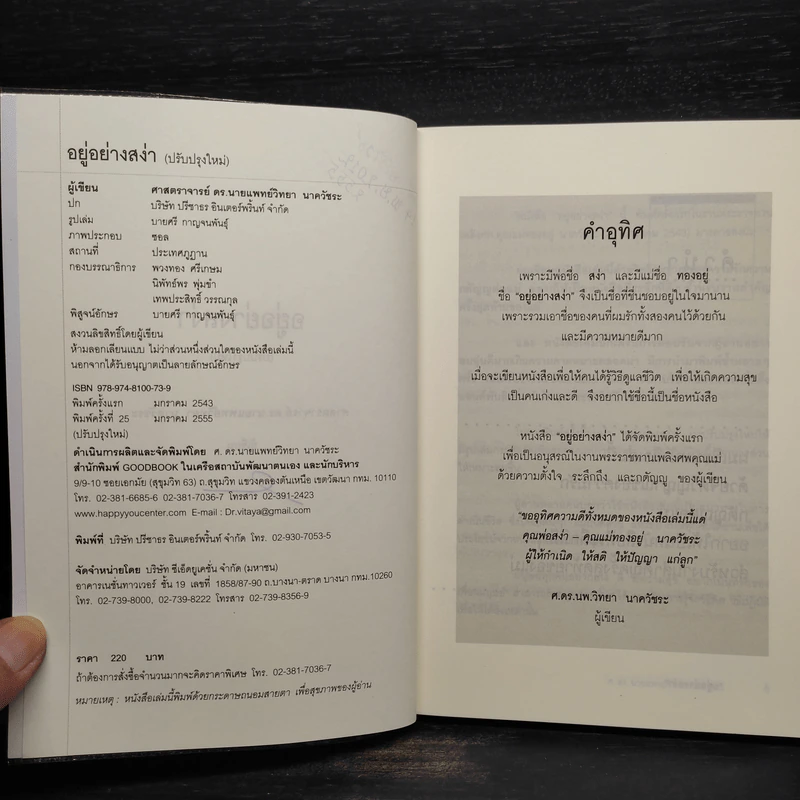 อยู่อย่างสง่า (ปรับปรุงใหม่)
ผู้เขียน ศาสตราจารย์ ดร.นายแพทย์วิทยา นาควัชระ
ปก บริษัท ปรีชาธร อินเตอร์พริ้นท์ จำกัด
รูปเล่ม บายศรี กาญจนพันธุ์
ภาพประกอบ ซอล
สถานที่ ประเทศภูฏาน
กองบรรณาธิการ พวงทอง ศรีเกษม
นิพัทธ์พร พุ่มช้ำ
เทพประสิทธิ์ วรรณกุล
พิสูจน์อักษร บายศรี กาญจนพันธุ์
สงวนลิขสิทธิ์โดยผู้เขียน
ห้ามลอกเลียนแบบ ไม่ว่าส่วนหนึ่งส่วนใดของหนังสือเล่มนี้
นอกจากได้รับอนุญาตเป็นลายลักษณ์อักษร
ISBN 978-974-8100-73-9
พิมพ์ครั้งแรก มกราคม 2543
พิมพ์ครั้งที่ 25 มกราคม 2555
(ปรับปรุงใหม่)
ดำเนินการผลิตและจัดพิมพ์โดย ศ. ดร.นายแพทย์วิทยา นาควัชระ
สำนักพิมพ์ GOODBOOK ในเครือสถาบันพัฒนาตนเอง และนักบริหาร
9/9-10 ซอยเอกมัย (สุขุมวิท 63) ถ.สุขุมวิท แขวงคลองตันเหนือ เขตวัฒนา กทม. 10110
โทร. 02-381-6685-6 02-381-7036-7 โทรสาร 02-391-2423
www.happyyoucenter.com E-mail : Dr.vitaya@gmail.com
พิมพ์ที่ บริษัท ปรีชาธร อินเตอร์พริ้นท์ จำกัด โทร. 02-930-7053-5
จัดจำหน่ายโดย บริษัท ซีเอ็ดยูเคชั่น จำกัด (มหาชน)
อาคารเนชั่นทาวเวอร์ ชั้น 19 เลขที่ 1858/87-90 ถ.บางนา-ตราด บางนา กทม.10260
โทร. 02-739-8000, 02-739-8222 โทรสาร 02-739-8356-9
ราคา 220 บาท
ถ้าต้องการสั่งซื้อจำนวนมากจะคิดราคาพิเศษ โทร. 02-381-7036-7
หมายเหตุ : หนังสือเล่มนี้พิมพ์ด้วยกระดาษถนอมสายตา เพื่อสุขภาพของผู้อ่าน
คำอุทิศ
เพราะมีพ่อชื่อ สง่า และมีแม่ชื่อ ทองอยู่
ชื่อ "อยู่อย่างสง่า" จึงเป็นชื่อที่ชื่นชอบอยู่ในใจมานาน
เพราะรวมเอาชื่อของคนที่ผมรักทั้งสองคนไว้ด้วยกัน
และมีความหมายดีมาก
เมื่อจะเขียนหนังสือเพื่อให้คนได้รู้วิธีดูแลชีวิต เพื่อให้เกิดความสุข
เป็นคนเก่งและดี จึงอยากใช้ชื่อนี้เป็นชื่อหนังสือ
หนังสือ "อยู่อย่างสง่า" ได้จัดพิมพ์ครั้งแรก
เพื่อเป็นอนุสรณ์ในงานพระราชทานเพลิงศพคุณแม่
ด้วยความตั้งใจ ระลึกถึง และกตัญญู ของผู้เขียน
"ขออุทิศความดีทั้งหมดของหนังสือเล่มนี้แด่
คุณพ่อสง่า – คุณแม่ทองอยู่ นาควัชระ
ผู้ให้กำเนิด ให้สติ ให้ปัญญา แก่ลูก"
ศ.ดร.นพ.วิทยา นาควัชระ
ผู้เขียน